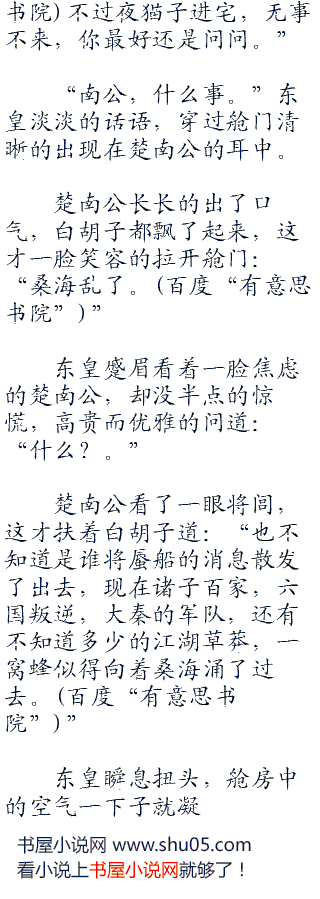 书院) 不过夜猫子进宅，无事
不来，你最好还是问问。”
“南公，什么事。”东
皇淡淡的话语，穿过舱门清
晰的出现在楚南公的耳中。
楚南公长长的出了口
气，白胡子都飘了起来，这
才一脸笑容的拉开舱门：
“桑海乱了。(百度“有意思
书院”)”
东皇蹙眉看着一脸焦虑
的楚南公，却没半点的惊
慌，高贵而优雅的问道：
“什么？。”
楚南公看了一眼将闾，
这才扶着白胡子道：“也不
知道是谁将蜃船的消息散发
了出去，现在诸子百家，六
国叛逆，大秦的军队，还有
不知道多少的江湖草莽，一
窝蜂似得向着桑海涌了过
去。(百度“有意思书
院”)”
东皇瞬息扭头，舱房中
的空气一下子就凝
书屋小说网 www.shu05.com
看小说上书屋小说网就够了！